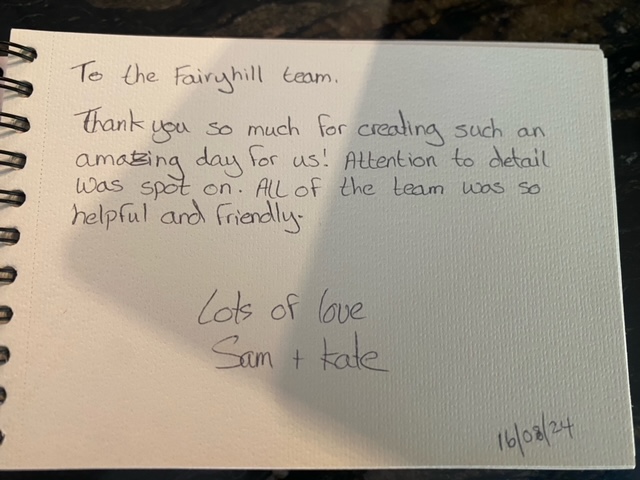 To the Fairyhill team.
Thank you so much for creating such an
amazing day for us! Attention to detail
was spot on. All of the team was so
helpful and friendly.
Lots of love
Sam + Kate
16/08/24